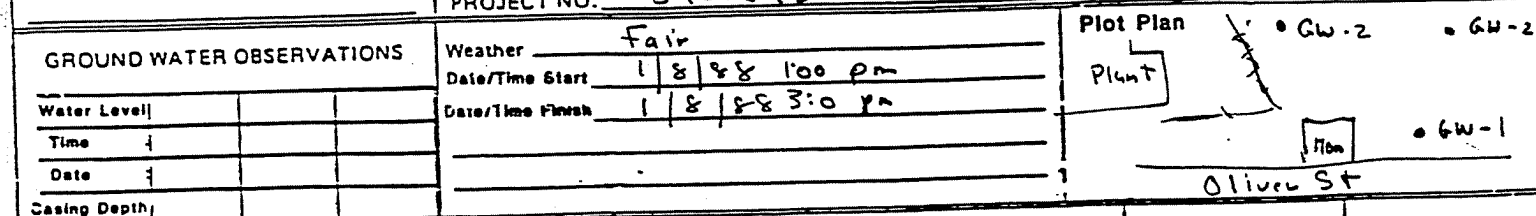 PROJECT NO.
GROUND WATER OBSERVATIONS
Water Level
Time
Date
Casing Depth
Weather Fair
Date/Time Start 1/8/88 1:00 pm
Date/Time Finish 1/8/88 3:0 pm
Plot Plan
Plant
GW-2
GW-2
GW-1
Oliver St